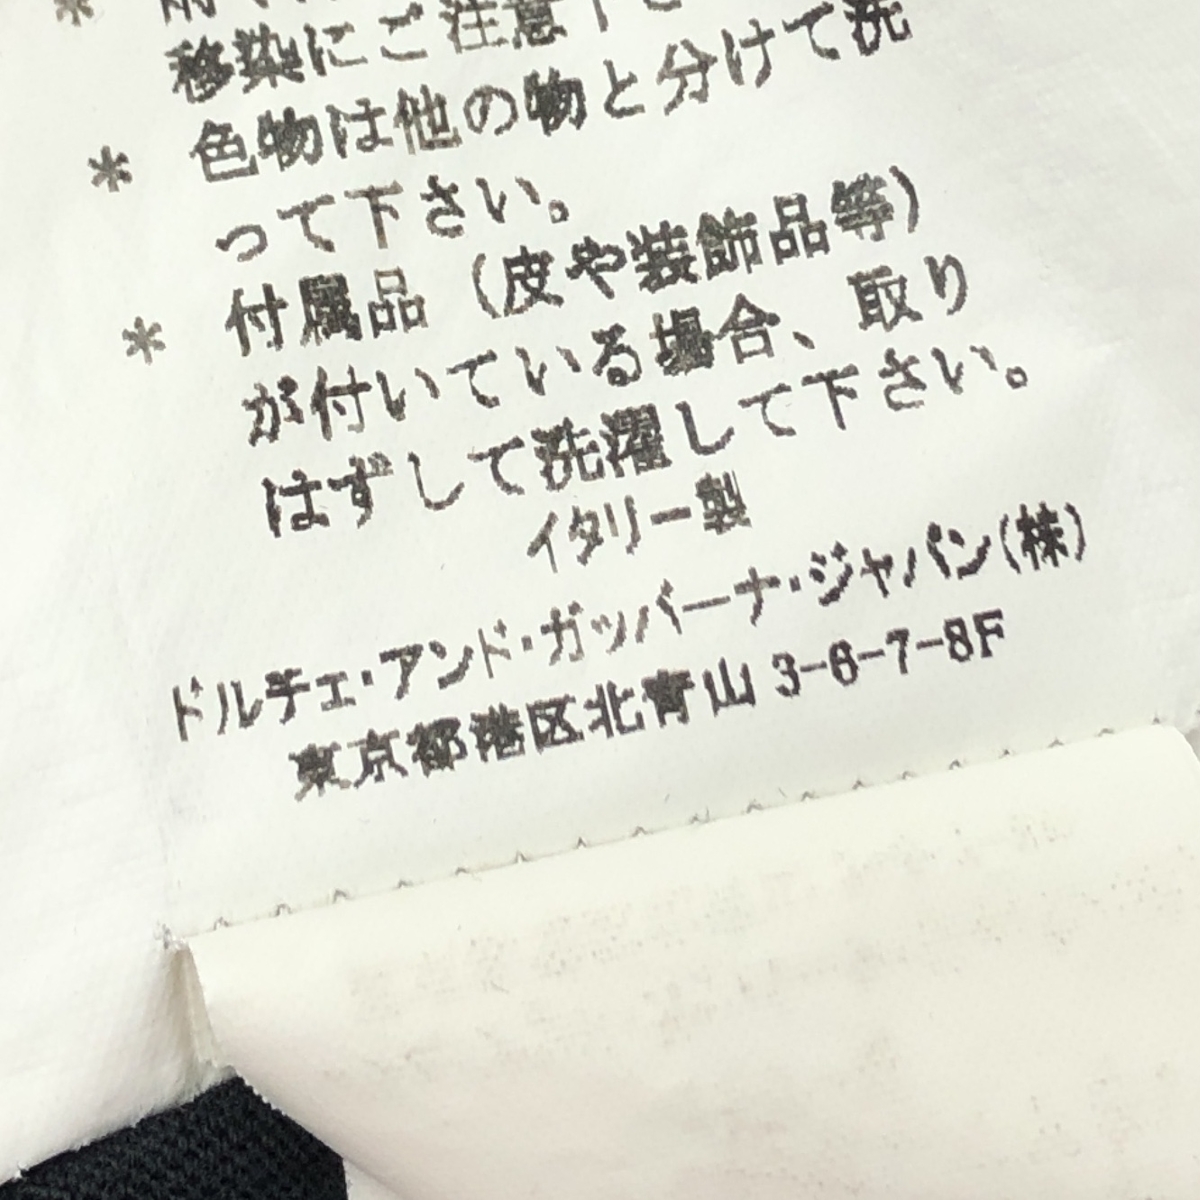 移染にご注意下さ
* 色物は他の物と分けて洗
って下さい。
* 付属品（皮や装飾品等）
が付いている場合、取り
はずして洗濯して下さい。
イタリー製
ドルチェ・アンド・ガッバーナ・ジャパン(株)
東京都港区北青山 3-6-7-8F